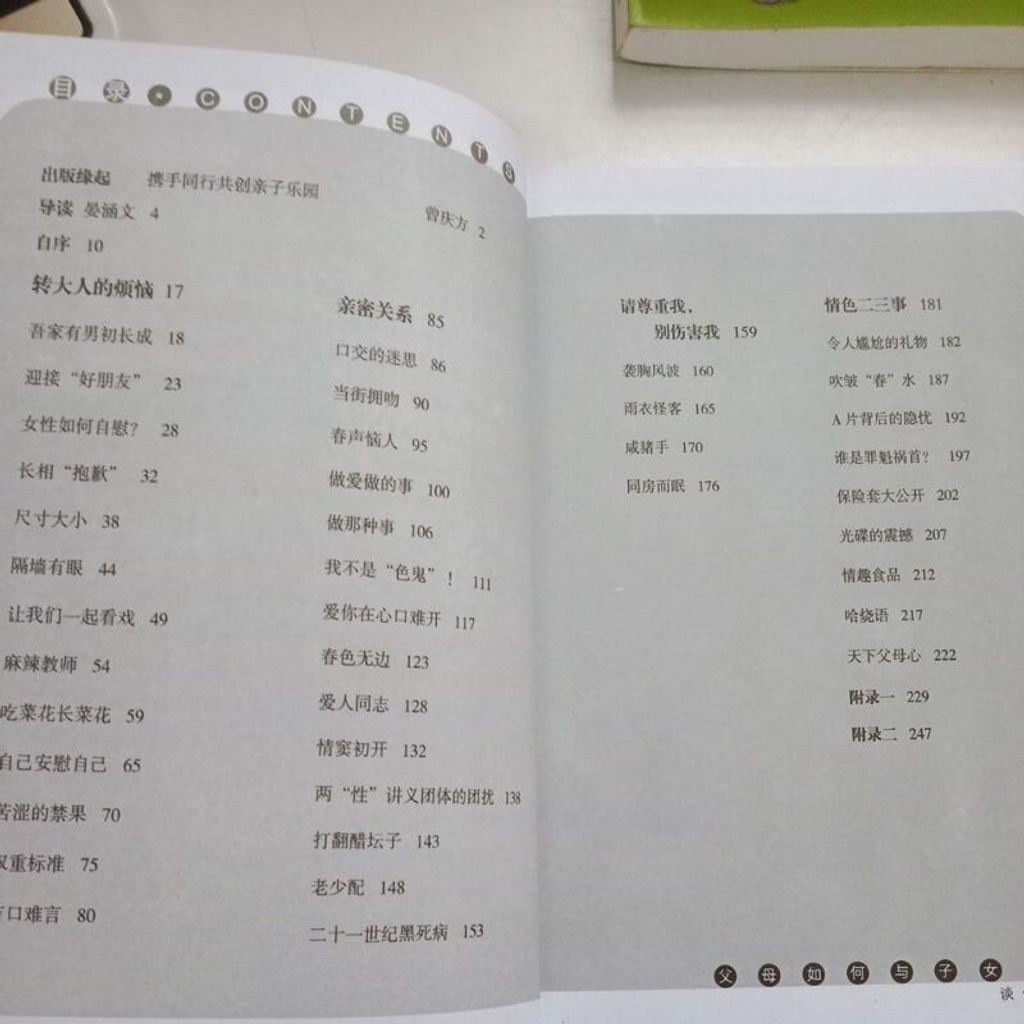 目录·CONTENTS
出版缘起 携手同行共创亲子乐园
曾庆方 2
导读 晏涵文 4
自序 10
转大人的烦恼 17
吾家有男初长成 18
迎接“好朋友” 23
女性如何自慰? 28
长相“抱歉” 32
尺寸大小 38
隔墙有眼 44
让我们一起看戏 49
麻辣教师 54
吃菜花长菜花 59
自己安慰自己 65
苦涩的禁果 70
双重标准 75
口难言 80
亲密关系 85
口交的迷思 86
当街拥吻 90
春声恼人 95
做爱做的事 100
做那种事 106
我不是“色鬼”! 111
爱你在心口难开 117
春色无边 123
爱人同志 128
情窦初开 132
两“性”讲义团体的困扰 138
打翻醋坛子 143
老少配 148
二十一世纪黑死病 153
请尊重我,
别伤害我 159
袭胸风波 160
雨衣怪客 165
咸猪手 170
同房而眠 176
情色二三事 181
令人尴尬的礼物 182
吹皱“春”水 187
A片背后的隐忧 192
谁是罪魁祸首? 197
保险套大公开 202
光碟的震撼 207
情趣食品 212
哈烧语 217
天下父母心 222
附录一 229
附录二 247
父母如何与子女
谈